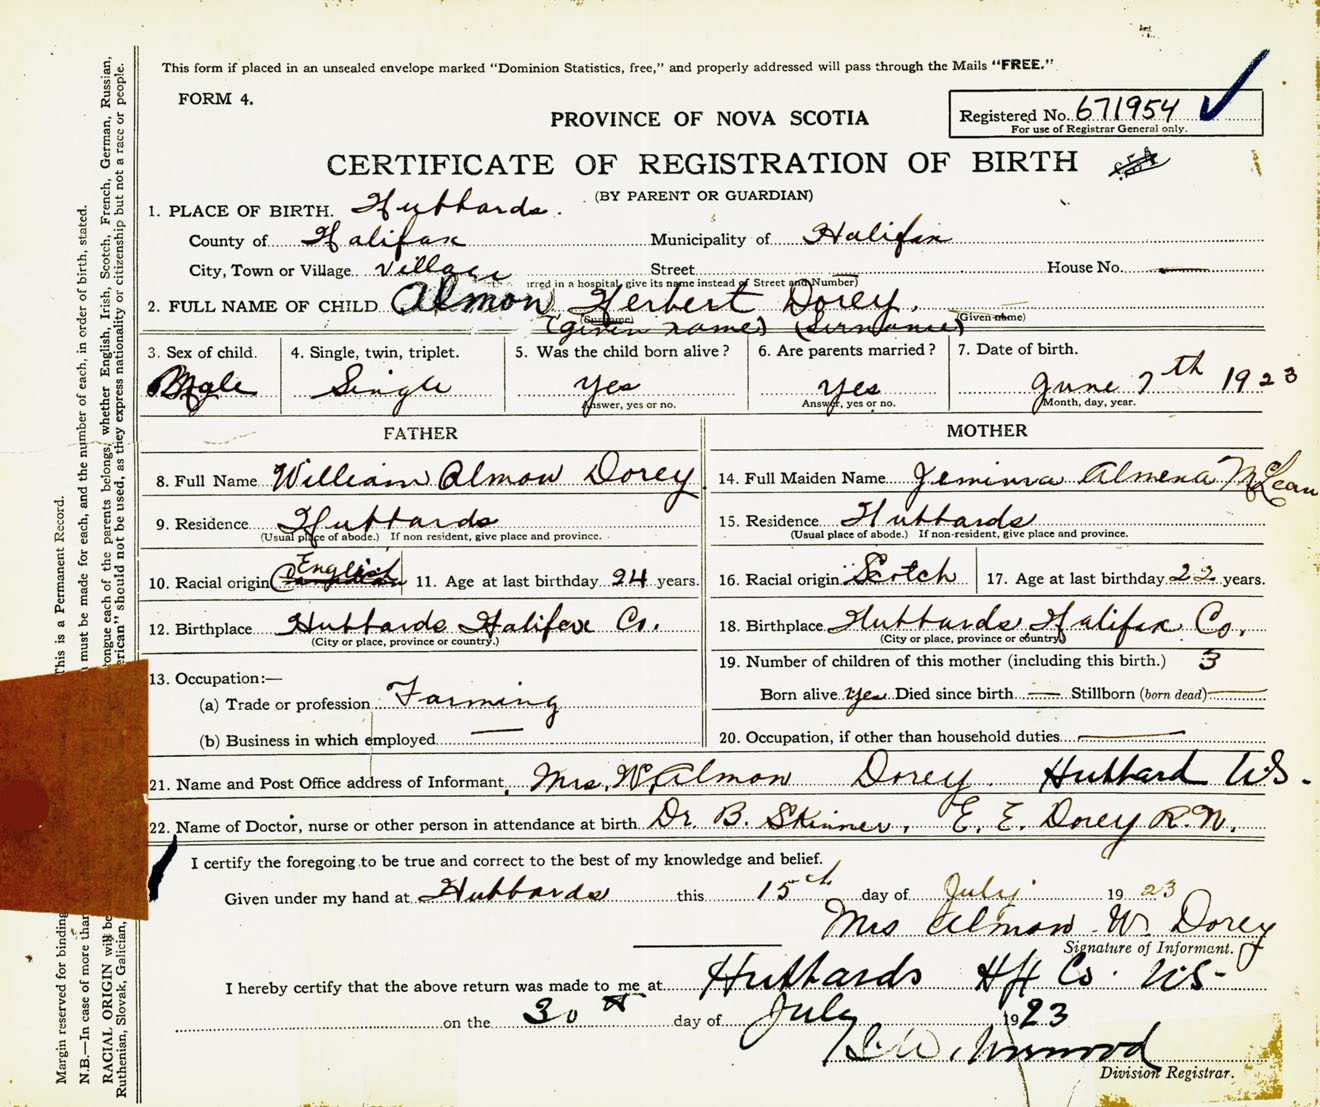 This form if placed in an unsealed envelope marked "Dominion Statistics, free," and properly addressed will pass through the Mails "FREE."
FORM 4.
PROVINCE OF NOVA SCOTIA
Registered No. 671954
For use of Registrar General only.
CERTIFICATE OF REGISTRATION OF BIRTH
(BY PARENT OR GUARDIAN)
1. PLACE OF BIRTH. Hubbards.
County of Halifax Municipality of Halifax
City, Town or Village. Village Street House No.
rred in a hospital, give its name instead of Street and Number)
2. FULL NAME OF CHILD Almon Herbert Dorey.
(Surname) (Given name)
(given name) (Surname)
3. Sex of child. 4. Single, twin, triplet. 5. Was the child born alive? 6. Are parents married? 7. Date of birth.
Male Single Yes Yes June 7th 1923
Answer, yes or no. Answer, yes or no. Month, day, year.
FATHER
8. Full Name William Almon Dorey
9. Residence Hubbards
(Usual place of abode.) If non resident, give place and province.
10. Racial origin English 11. Age at last birthday 24 years.
12. Birthplace Hubbards Halifax Co.
(City or place, province or country.)
13. Occupation:—
(a) Trade or profession Farming
(b) Business in which employed
MOTHER
14. Full Maiden Name Jemima Almena McLean
15. Residence Hubbards
(Usual place of abode.) If non-resident, give place and province.
16. Racial origin Scotch 17. Age at last birthday 22 years.
18. Birthplace Hubbards Halifax Co.
(City or place, province or country)
19. Number of children of this mother (including this birth.) 3
Born alive yes Died since birth Stillborn (born dead)
20. Occupation, if other than household duties
21. Name and Post Office address of Informant Mrs. W. Almon Dorey. Hubbard NS.
22. Name of Doctor, nurse or other person in attendance at birth Dr. B. Skinner, E. E. Dorey R.N.
I certify the foregoing to be true and correct to the best of my knowledge and belief.
Given under my hand at Hubbards this 15th day of July 1923
Mrs Almon W. Dorey
Signature of Informant.
I hereby certify that the above return was made to me at Hubbards Hfx Co. NS
on the 30th day of July 1923
Division Registrar.
Margin reserved for binding
This is a Permanent Record.
N.B.—In case of more than
must be made for each, and the number of each, in order of birth, stated.
RACIAL ORIGIN will be
tongue each of the parents belongs, whether English, Irish, Scotch, French, German, Russian,
Ruthenian, Slovak, Galician,
erican" should not be used, as they express nationality or citizenship but not a race or people.